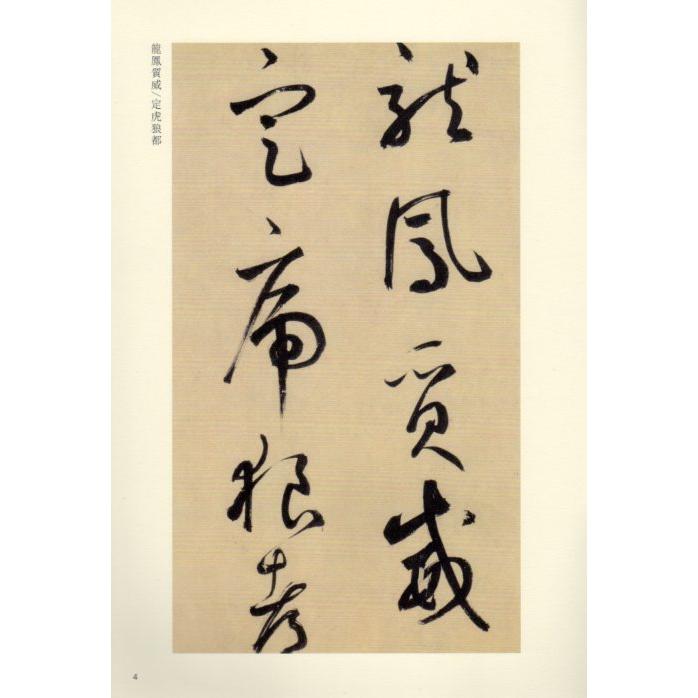 龍鳳質威
定虎狼都
龍鳳質威/定虎狼都
4